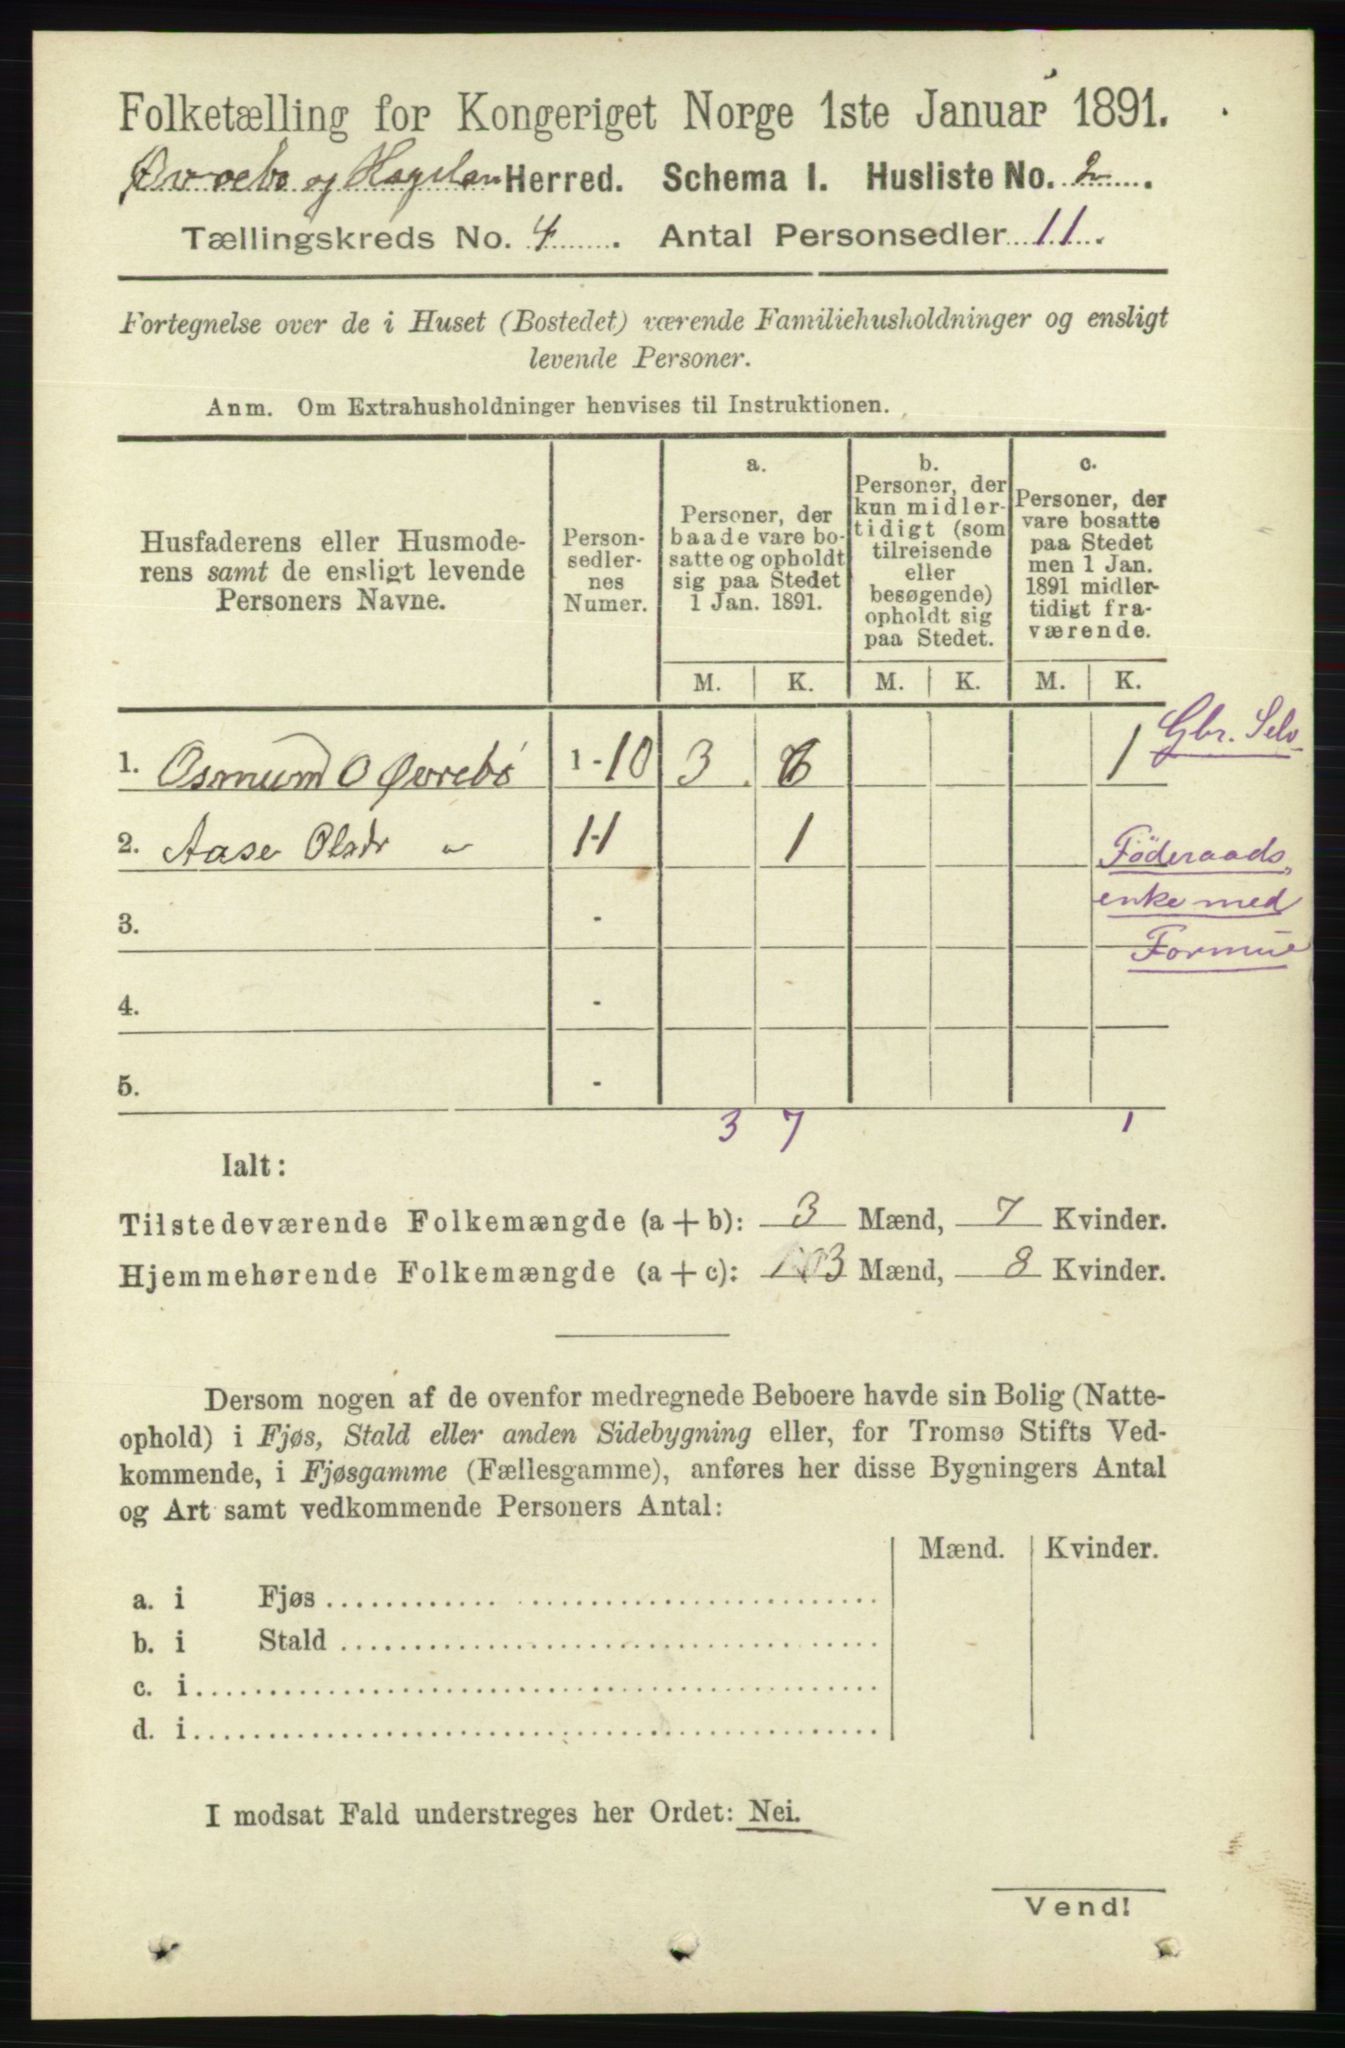 Folketælling for Kongeriget Norge 1ste Januar 1891.
Øvrebø og Hægelan Herred. Schema I. Husliste No. 2.
Tællingskreds No. 4. Antal Personsedler 11.
Fortegnelse over de i Huset (Bostedet) værende Familiehusholdninger og ensligt
levende Personer.
Anm. Om Extrahusholdninger henvises til Instruktionen.
Husfaderens eller Husmode-
rens samt de ensligt levende
Personers Navne.
Person-
sedler-
nes
Numer.
a.
Personer, der
baade vare bo-
satte og opholdt
sig paa Stedet
1 Jan. 1891.
b.
Personer, der
kun midler-
tidigt (som
tilreisende
eller
besøgende)
opholdt sig
paa Stedet.
c.
Personer, der
vare bosatte
paa Stedet
men 1 Jan.
1891 midler-
tidigt fra-
værende.
M. K. M. K. M. K.
1. Osmund O Øvrebø 1-10 3 6 1 Gbr. Selv
2. Aase Olsdr " 11 1 Föderaads
enke med
3. -
Formue
4. -
5. -
3 7 1
Ialt:
Tilstedeværende Folkemængde (a + b): 3 Mænd, 7 Kvinder.
Hjemmehørende Folkemængde (a + c): 3 Mænd, 8 Kvinder.
Dersom nogen af de ovenfor medregnede Beboere havde sin Bolig (Natte-
ophold) i Fjøs, Stald eller anden Sidebygning eller, for Tromsø Stifts Ved-
kommende, i Fjøsgamme (Fællesgamme), anføres her disse Bygningers Antal
og Art samt vedkommende Personers Antal:
Mænd. Kvinder.
a. i Fjøs
b. i Stald
c. i
d. i
I modsat Fald understreges her Ordet: Nei.
Vend!